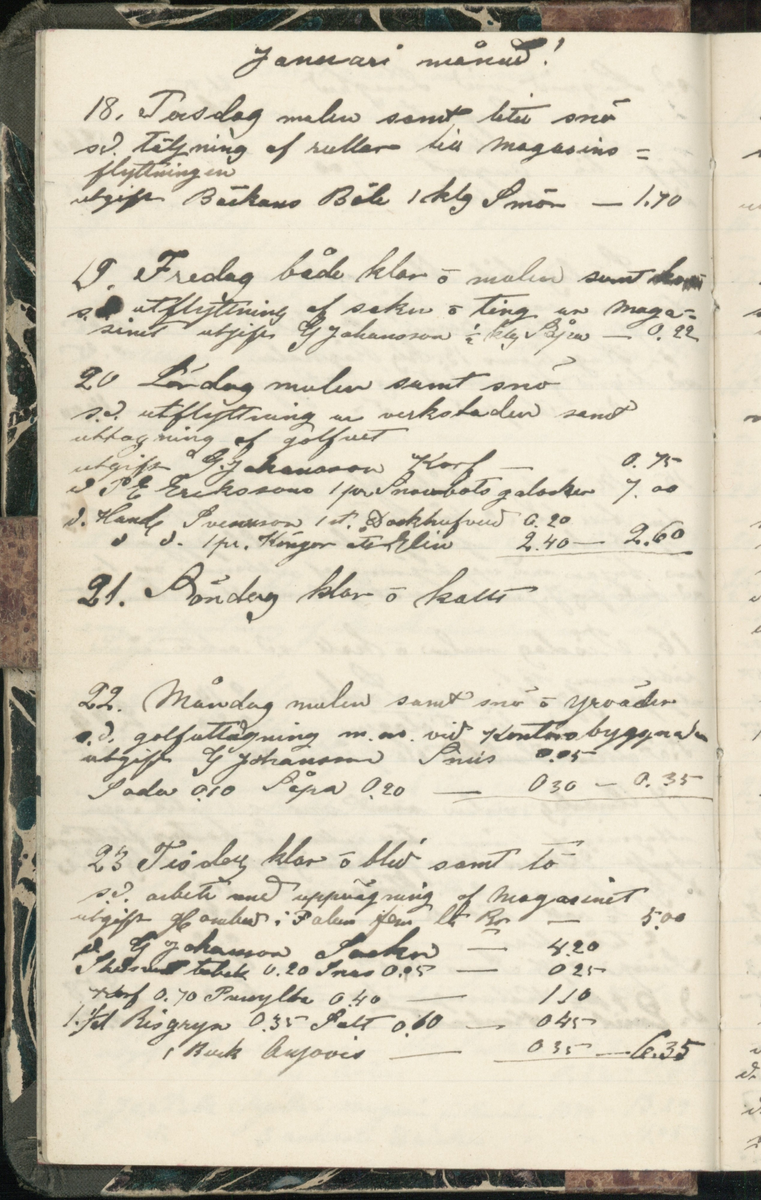 Januari månad!
18. Torsdag mulen samt litet snö
s.d. täljning af rullar till magasins=
flyttningen
utgift Bäckans Böle 1 klg Smör — 1.70
19. Fredag både klar o mulen samt
s.d. utflyttning af saker o ting ur maga=
sinet utgift G Johansson ½ klg Såpa — 0.22
20 Lördag mulen samt snö
s.d. utflyttning ur verkstaden samt
uttagning af golfvet
utgift G. Johansson Korf — 0.75
d P E Erikssons 1 pr Snowbots galocker 7.00
d. Handl Svensson 1 st. Dockhufvud 0.20
d d. 1 pr. Kängor åt Elin 2.40 — 2.60
21. Söndag klar o kallt
22. Måndag mulen samt snö o yrväder
s.d. golfuttagning m.m. vid Kontorsbyggnaden
utgift G Johansson Snus 0.05
Soda 0.10 Såpa 0.20 — 0 30 — 0.35
23 Tisdag klar o blid samt tö
s.d. arbete med uppvägning af magasinet
utgift i Falun fem Kr — 5.00
d G Johansson Socker — 4.20
tobak 0.20 Snus 0.05 — 0 25
Korf 0.70 0.40 — 1.10
Risgryn 0.35 Salt 0.10 — 0 45
1 Burk Ansjovis — 0 35 — 6.35